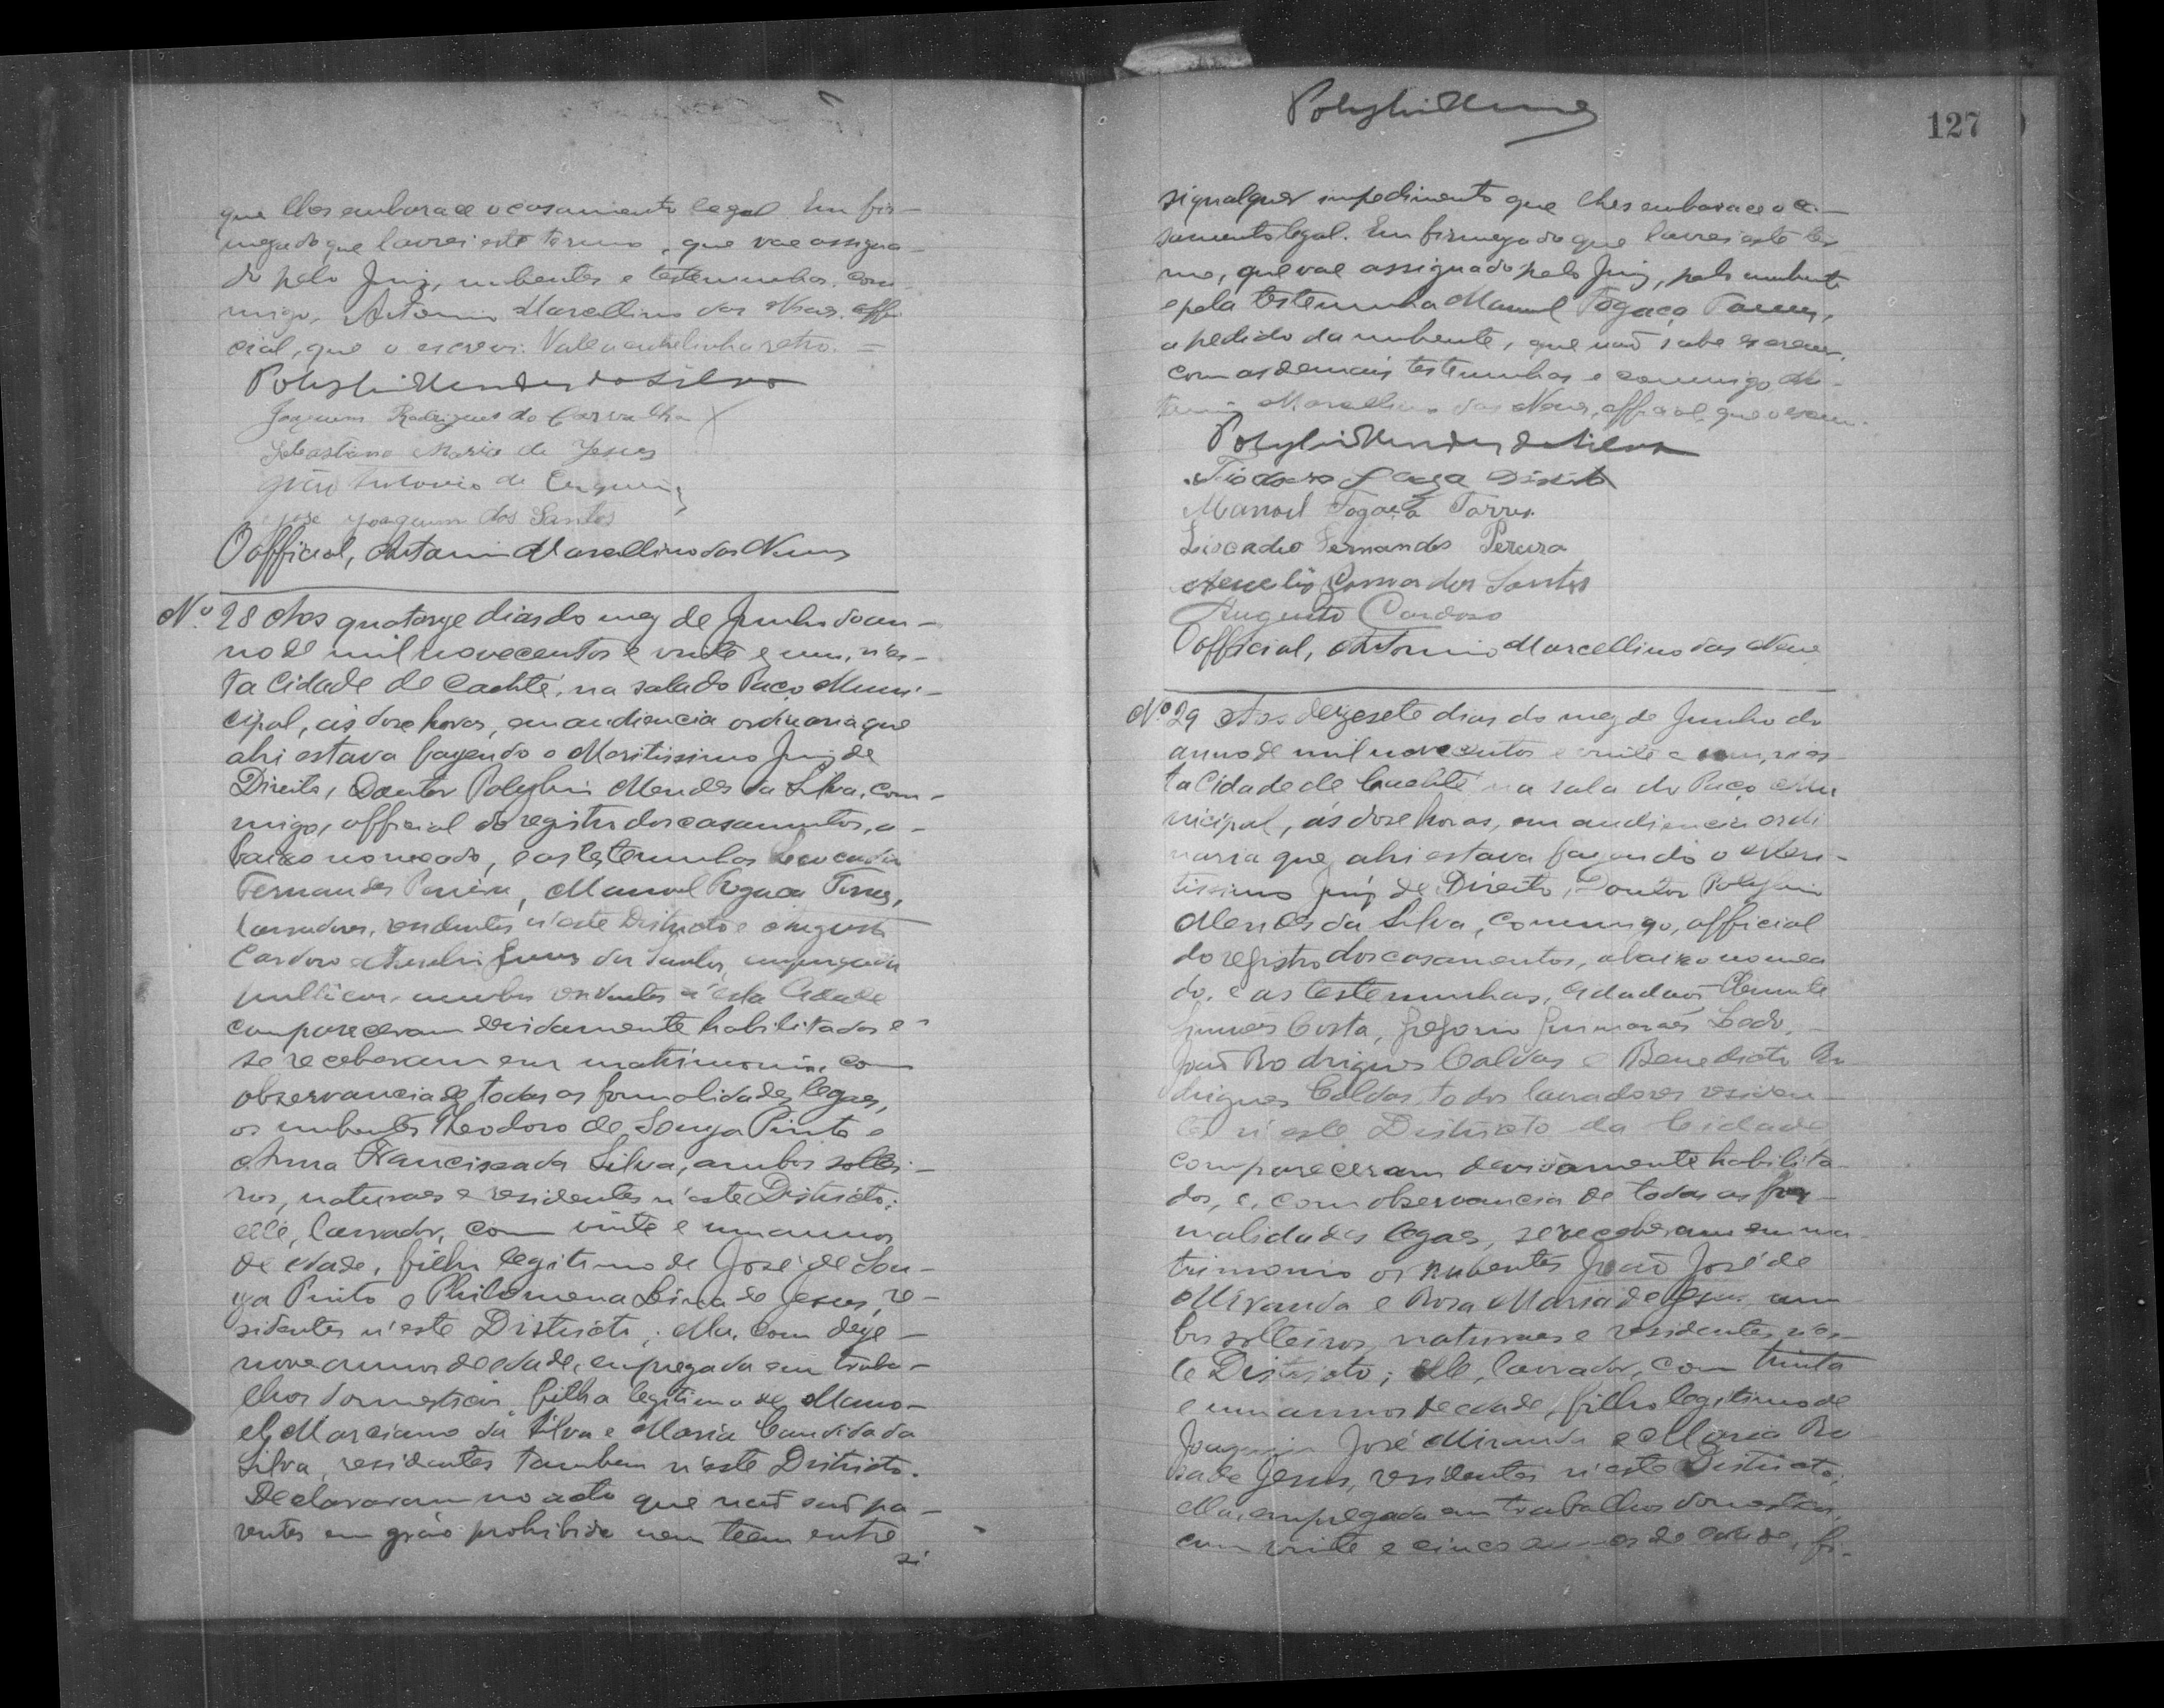 que lhes embarace o casamento legal. Em fir-
meza do que lavrei este termo, que vae assigna-
do pelo Juiz, nubentes e testemunhas, com-
migo, Antonio Marcellino das Neves, offi-
cial, que o escrevi. Vale a entrelinha retro. =
Polybio Mendes da Silva
Joaquim Rodrigues de Carvalho
Sebastiana Maria de Jesus
Antonio de
José Joaquim dos Santos
O official, Antonio Marcellino das Neves
Nº 28 Aos quatorze dias do mez de Junho do an-
no de mil novecentos e vinte e um, n'es-
ta Cidade de Caethé, na sala do Paço Muni-
cipal, ás doze horas, em audiencia ordinaria que
ahi estava fazendo o Meritissimo Juiz de
Direito, Doutor Polybio Mendes da Silva, com-
migo, official do registro dos casamentos, a-
baixo nomeado, e as testemunhas Leocadio
Fernandes Pereira, Manoel Fogaça Torres,
lavradores, residentes n'este Districto e Augusto
Cardoso e Aurelio dos Santos, empregados
publicos, ambos residentes n'esta Cidade
compareceram devidamente habilitados e
se receberam em matrimonio, com
observancia de todas as formalidades legaes,
os nubentes Theodoro de Souza Pinto e
Anna Francisca da Silva, ambos soltei-
ros, naturaes e residentes n'este Districto;
elle, lavrador, com vinte e um annos
de edade, filho legitimo de José de Sou-
za Pinto e Philomena Lina de Jesus, re-
sidentes n'este Districto; ella, com deze-
nove annos de edade, empregada em traba-
lhos domesticos, filha legitima de Mano-
el Marciano da Silva e Maria Candida da
Silva, residentes tambem n'este Districto.
Declararam no acto que não são pa-
rentes em gráo prohibido nem teem entre
si
Polybio Mendes
127
si qualquer impedimento que lhes embarace o ca-
samento legal. Em firmeza do que lavrei este ter-
mo, que vae assignado pelo Juiz, pelo nubente
e pela testemunha Manoel Fogaça Torres,
a pedido da nubente, que não sabe escrever,
com as demais testemunhas e commigo, An-
tonio Marcellino das Neves, official, que o escrevi.
Polybio Mendes da Silva
Tiodoro Pinto
Manoel Fogaça Torres
Liocadio Fernandes Pereira
Aurelio dos Santos
Augusto Cardoso
O official, Antonio Marcellino das Neves
Nº 29 Aos dezesete dias do mez de Junho do
anno de mil novecentos e vinte e um, n'es-
ta Cidade de Caethé na sala do Paço Mu
nicipal, ás doze horas, em audiencia ordi
naria que ahi estava fazendo o Meri-
tissimo Juiz de Direito, Doutor Polybio
Mendes da Silva, commigo, official
do registro dos casamentos, abaixo nomea
do, e as testemunhas, cidadãos Clemente
Costa, Gregorio Guimarães
João Rodrigues Caldas e Benedicto Ro
drigues Caldas, todos lavradores residen-
tes n'este Districto da Cidade,
compareceram devidamente habilita
dos, e, com observancia de todas as for-
malidades legaes, se receberam em ma-
trimonio os nubentes João José de
Miranda e Rosa Maria de Jesus, am
bos solteiros, naturaes e residentes n'es-
te Districto; elle, lavrador, com trinta
e um annos de edade, filho legitimo de
Joaquim José Miranda e Maria Ro
sa de Jesus, residentes n'este Districto;
ella, empregada em trabalhos domesticos,
com vinte e cinco annos de edade, fi-